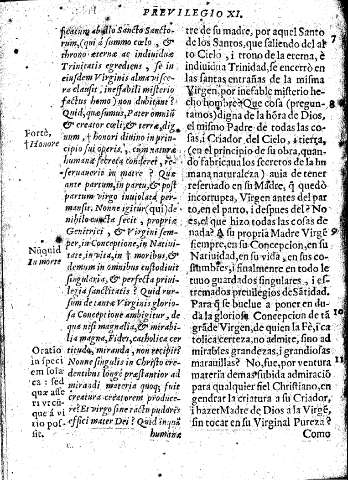 PREVILEGIO XI.
ficatum ab illo Sancto Sanctorum,
(qui á summo cœlo, &
throno æternæ ac individuæ
Trinitatis egrediens, se in
ejusdem Virginis alma viscera
clausit, ineffabili misterio
factus homo) non dubitanc?
Quid, quæsumus, Pater omniũ
& creator cœli, & terræ, dignum,
† honori divino in principio
sui operis, cum naturæ
humanæ secreta conderet, reservaverit
in matre? Quæ
ante partum, in partu, & post
partum virgo inviolata permansit.
Nonne igitur (qui) de
nihilo cuncta fecit, propria
Genitrici, & Virgini semper,
in Conceptione, in Nativitate,
in vita, in † moribus, &
demum in omnibus custodivit
singularia, & perfecta privilegia
sanctitatis? Quid rursum
de tantæ Virginis gloriosa
Conceptione ambigitur, de
qua nisi magnalia, & mirabilia
magna, Fides, catholica certitudo,
miranda, non recipit?
Nonne singulis in Christo credentibus
longe præstantior admirandi
materia quoq; fuit
creatura creatorem producere?
Et virgo sine tactu pudoris
effici mater Dei? Quid inquã
humanæ
Fortè,
† Honore
Nũquid
In morte
Oratio
in speciem
sola
ca: sed
quæ asserit
virtutem
á vero
possit.
tre de su madre, por aquel Santo
de los Santos, que saliendo del alto
Cielo, i trono de la eterna, è
indiuidua Trinidad, se encerrò en
las santas entrañas de la misma
Virgen, por inefable misterio hecho
hombre? Que cosa (preguntamos)
digna de la hõra de Dios,
el mismo Padre de todas las cosas,
i Criador del Cielo, i tierra,
(en el principio de su obra, quando
fabricaua los secretos de la humana
naturaleza) auia de tener
reseruado en su Madre, q̃ quedò
incorrupta, Virgen antes del parto,
en el parto, i despues del? No
es, el que hizo todas las cosas de
nada? A su propria Madre Virgẽ
siempre, en su Concepcion, en su
Natiuidad, en su vida, en sus costumbres,
i finalmente en todo le
tuuo guardados singulares, i estremados
preuilegios de Sãtidad.
Para q̃ se buelue a poner en duda
la gloriosa Concepcion de tã
grãde Virgen, de quien la Fè, i catolica
certeza, no admite, sino admirables
grandezas, i grandiosas
marauillas? No, fue, por ventura
materia de mas subida admiraciõ
para qualquier fiel Christiano, engendrar
la criatura a su Criador,
i hazer Madre de Dios a la Virgẽ,
sin tocar en su Virginal Pureza?
Como
7
8
9
10
11